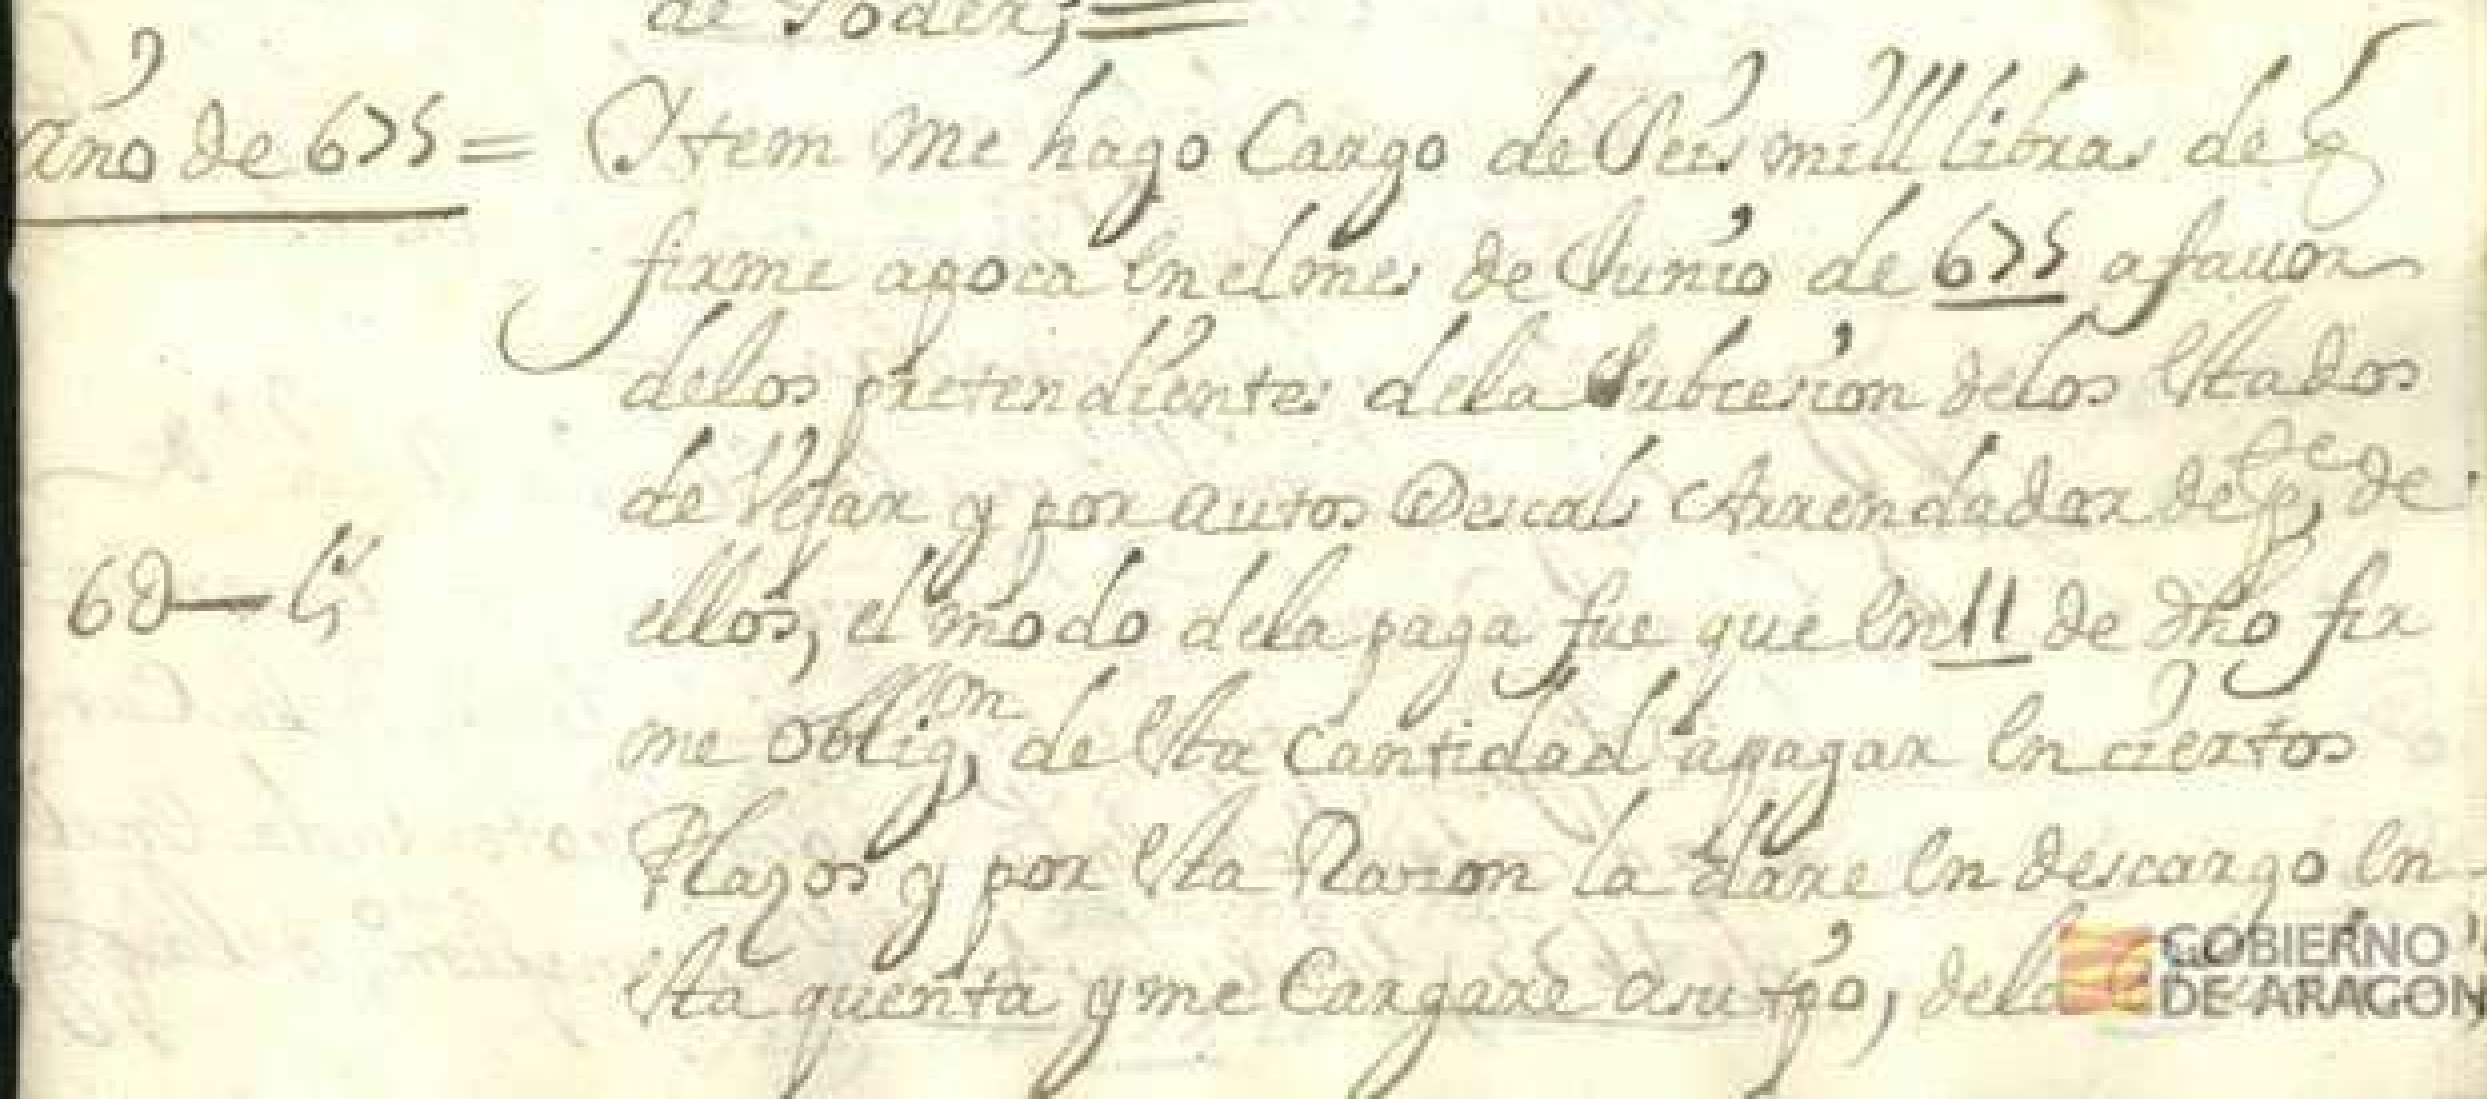 de Poder;
año de 675 = Item me hago Cargo de Seis mill libras de q
firme apoca en el mes de Junio de 675 a fauor
delos pretendientes dela Subcesion delos estados
de Vejar y por autos Descals Arrendador de ge, de
ellos, el modo dela paga fue que en 11 de dho fir
6D — L
me obligon, de esta Cantidad apagar en ciertos
Plazos y por esta Razon la dare en descargo en
esta quenta y me Cargare asu tpo, dela
GOBIERNO
DE ARAGON